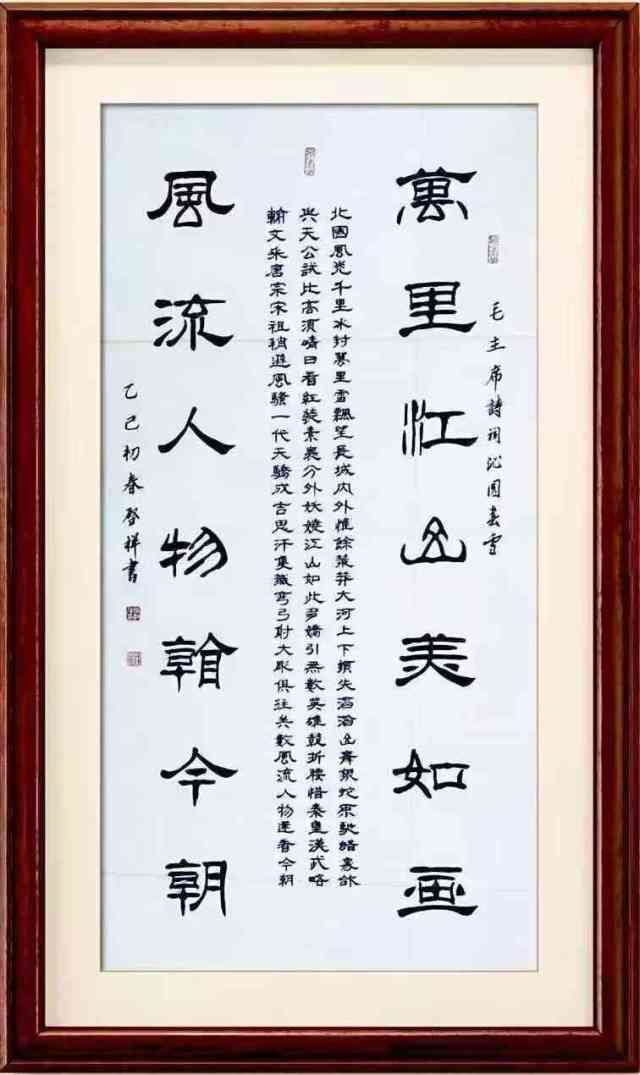 萬里江山美如画
毛主席詩詞沁园春雪
北國風光千里冰封萬里雪飄望長城内外惟餘莽莽大河上下頓失滔滔山舞銀蛇原馳蜡象欲
與天公試比高須晴日看紅裝素裹分外妖嬈江山如此多嬌引無數英雄競折腰惜秦皇漢武略
輸文采唐宗宋祖稍遜風騷一代天驕成吉思汗隻識彎弓射大雕俱往矣數風流人物還看今朝
風流人物看今朝
乙巳初春啓祥書